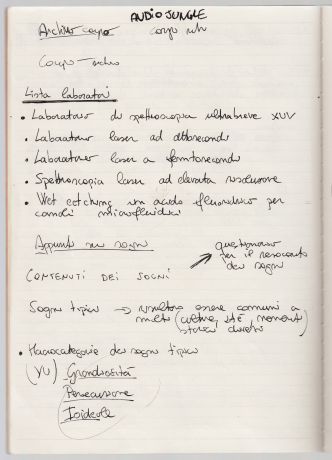 AUDIOJUNGLE
Archivio corpo corpo
Corpo
Lista laboratori
• Laboratorio di spettroscopia ultrabreve XUV
• Laboratorio laser ad attosecondi
• Laboratorio laser a femtosecondi
• Spettroscopia laser ad elevata risoluzione
• Wet etching in acido fluoridrico per
canali microfluidici
Appunti su sogni
questionario
per il resoconto
dei sogni
CONTENUTI DEI SOGNI
Sogni tipici → risultano essere comuni a
molti (culture, età, momenti
storici diversi)
• Macrocategorie dei sogni tipici
(YU) Grandiosità
Persecuzione